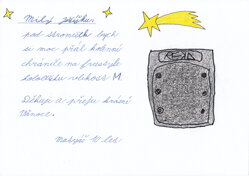 Milý Ježíšku,
pod stromeček bych
si moc přál kolenní
chrániče na freestyle
koloběžku velikost M.
Děkuji a přeju krásné
Vánoce.
Matyáš 10 let